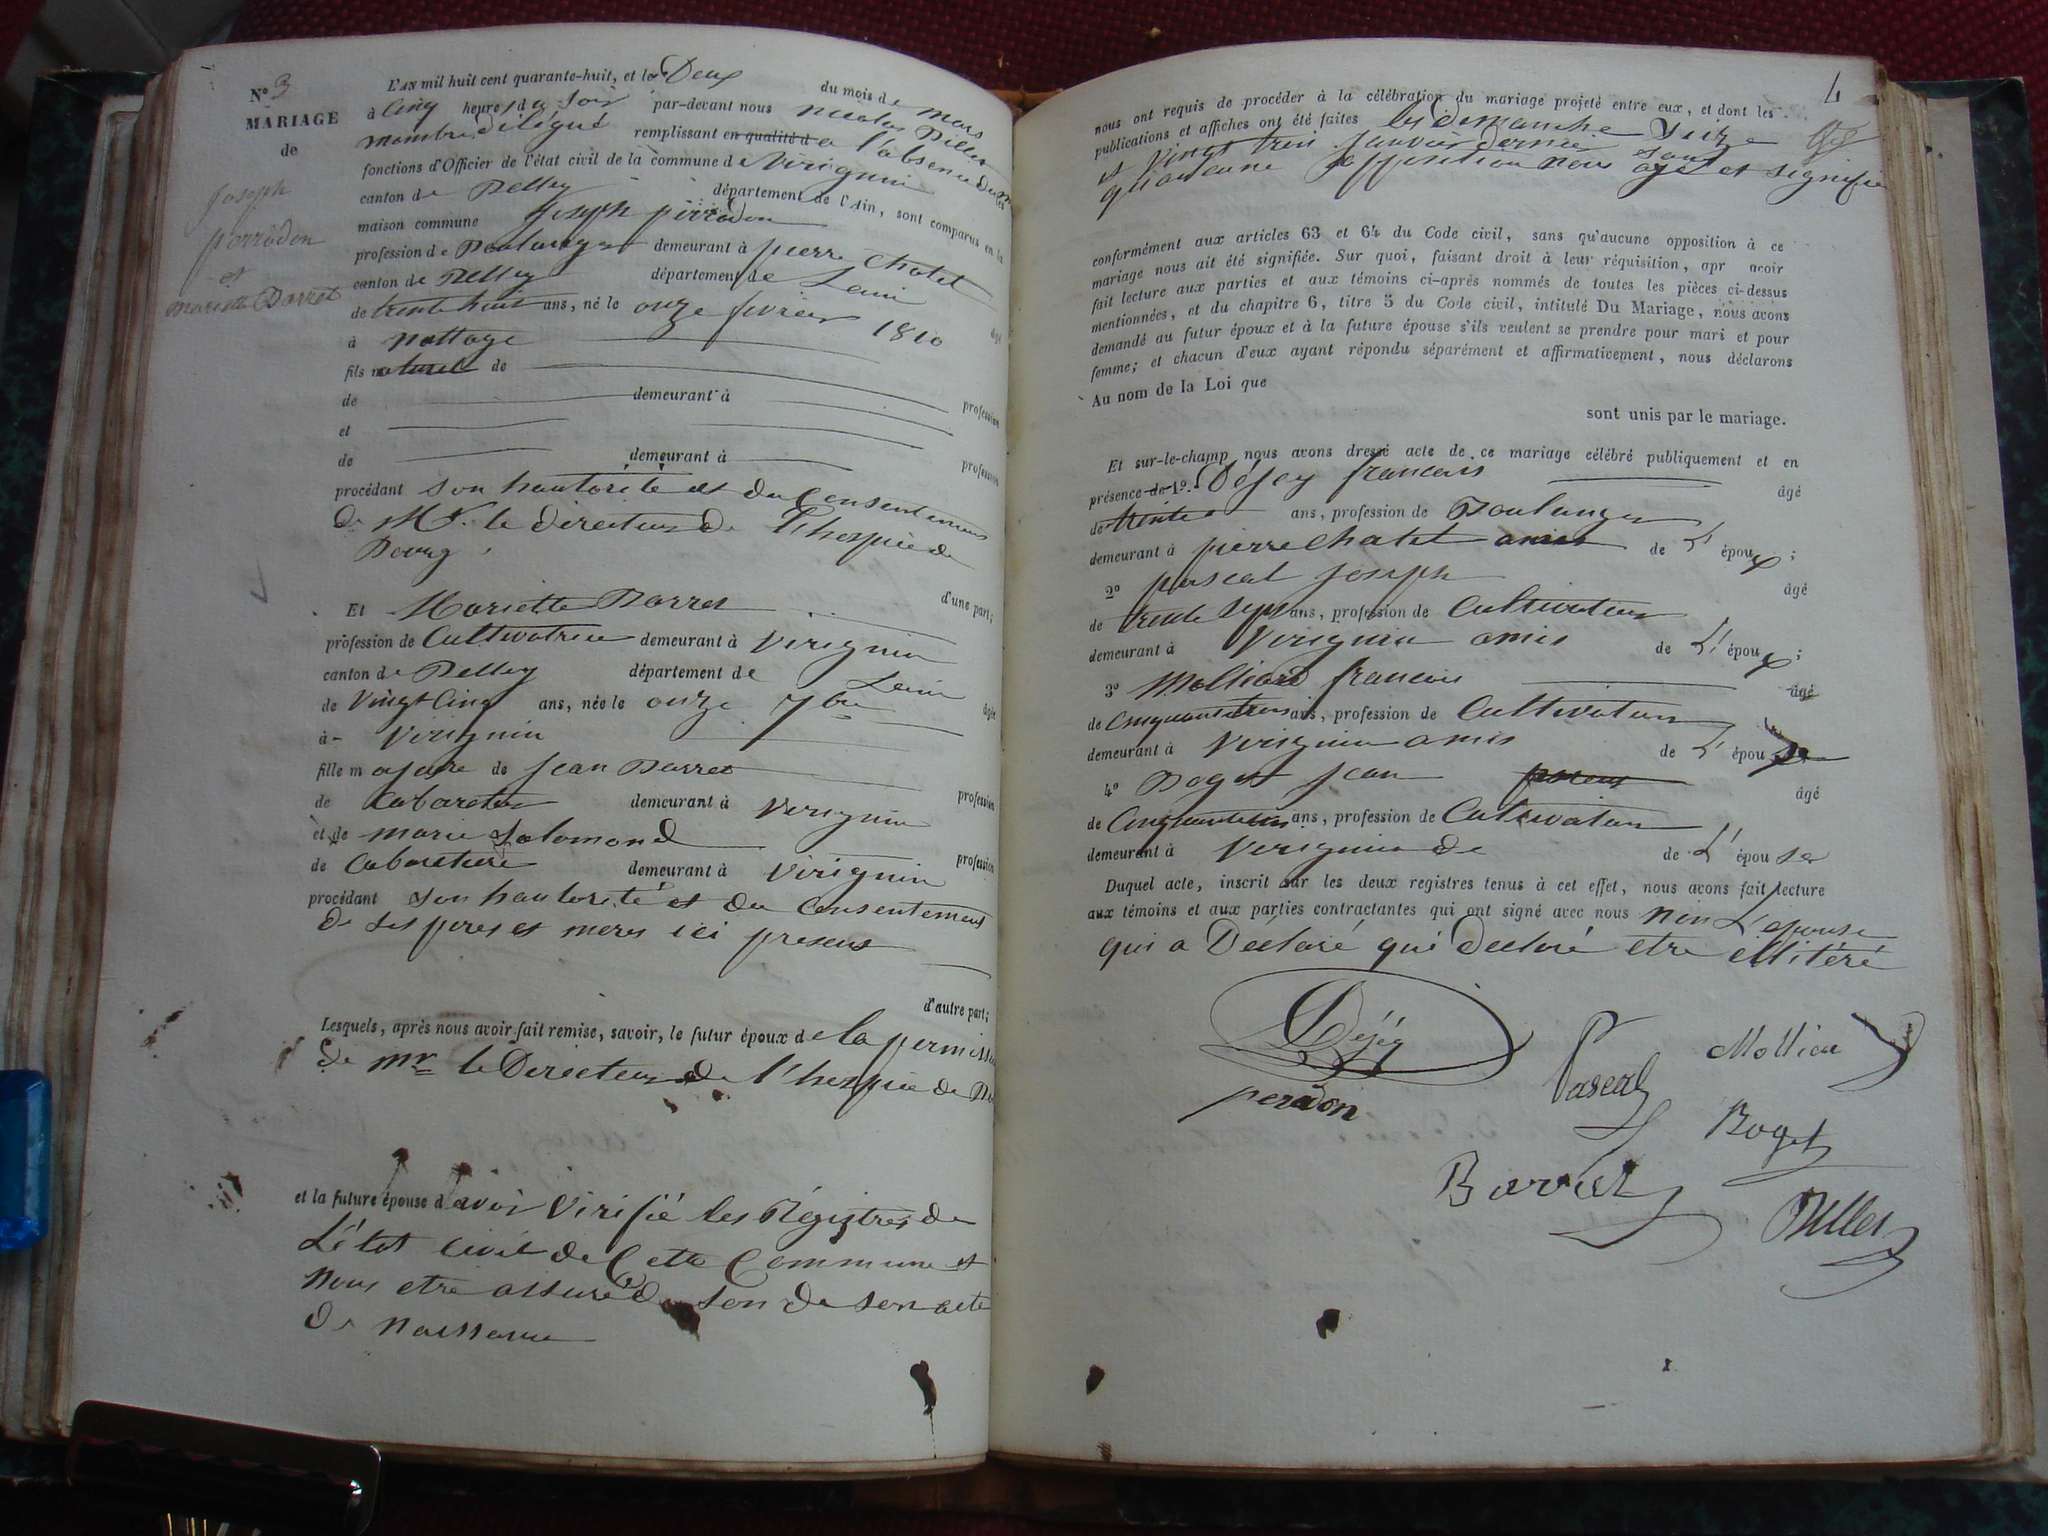 N.º 3
MARIAGE
de
Joseph
perrodon
et
Mariette Barret
L'AN mil huit cent quarante-huit, et le Deux du mois de Mars
à Cinq heures du Soir par-devant nous nicolas Billet
membre délégué remplissant en qualité d a l'absence du
fonctions d'Officier de l'état civil de la commune de Virignin
canton de Belley département de l'Ain, sont comparus en la
maison commune Joseph perrodon
profession de Boulanger demeurant à pierre Chatel
canton de Belley département de Lain
de trente huit ans, né le onze fevrier 1810 âgé
à Nattage
fils naturel de
de demeurant à profession
et
de demeurant à profession
procédant son hautorité et du Consentement
de Mr. le directeur de l'hospice de
Bourg
d'une part;
Et Mariette Barret
profession de Cultivatrice demeurant à Virignin
canton de Belley département de Lain
de Vingt Cinq ans, née le onze 7bre âgée
à Virignin
fille majore de Jean Barret
de Cabaretier demeurant à Virignin profession
et de marie Salomond
de Cabaretiere demeurant à Virignin profession
procédant son hautorité et du Consentement
de ses peres et meres ici presens
d'autre part;
Lesquels, après nous avoir fait remise, savoir, le futur époux de la permission
de Mr le Directeur de l'hospice de
et la future épouse d'avoir Virifié les Régistres de
L'état Civil de Cette Commune et
nous etre assuré de son de son acte
de naissance
4
nous ont requis de procéder à la célébration du mariage projeté entre eux, et dont les
publications et affiches ont été faites les Dimanche Seize
et Vingt trois Janvier dernier sans
qu'aucune opposition nous aye et signifié
conformément aux articles 63 et 64 du Code civil, sans qu'aucune opposition à ce
mariage nous ait été signifiée. Sur quoi, faisant droit à leur réquisition, apr avoir
fait lecture aux parties et aux témoins ci-après nommés de toutes les pièces ci-dessus
mentionnées, et du chapitre 6, titre 5 du Code civil, intitulé Du Mariage, nous avons
demandé au futur époux et à la future épouse s'ils veulent se prendre pour mari et pour
femme; et chacun d'eux ayant répondu séparément et affirmativement, nous déclarons
Au nom de la Loi que
sont unis par le mariage.
Et sur-le-champ nous avons dressé acte de ce mariage célébré publiquement et en
présence de 1º. Déjey francois âgé
de trente ans, profession de Boulanger
demeurant à pierre Chatel amis de L' époux;
2º pascal Joseph âgé
de trente sept ans, profession de Cultivateur
demeurant à Virignin amis de L' époux;
3º Molliard francois âgé
de Cinquante trois ans, profession de Cultivateur
demeurant à Virignin amis de L' épouse
4º Boget Jean âgé
de ans, profession de Cultivateur
demeurant à Virignin de de L' épouse
Duquel acte, inscrit sur les deux registres tenus à cet effet, nous avons fait lecture
aux témoins et aux parties contractantes qui ont signé avec nous Non L'epouse
qui a Déclaré qui declaré etre illitéré
Déjey
Pascal
Mollier
perodon
Boget
Barret
Billet